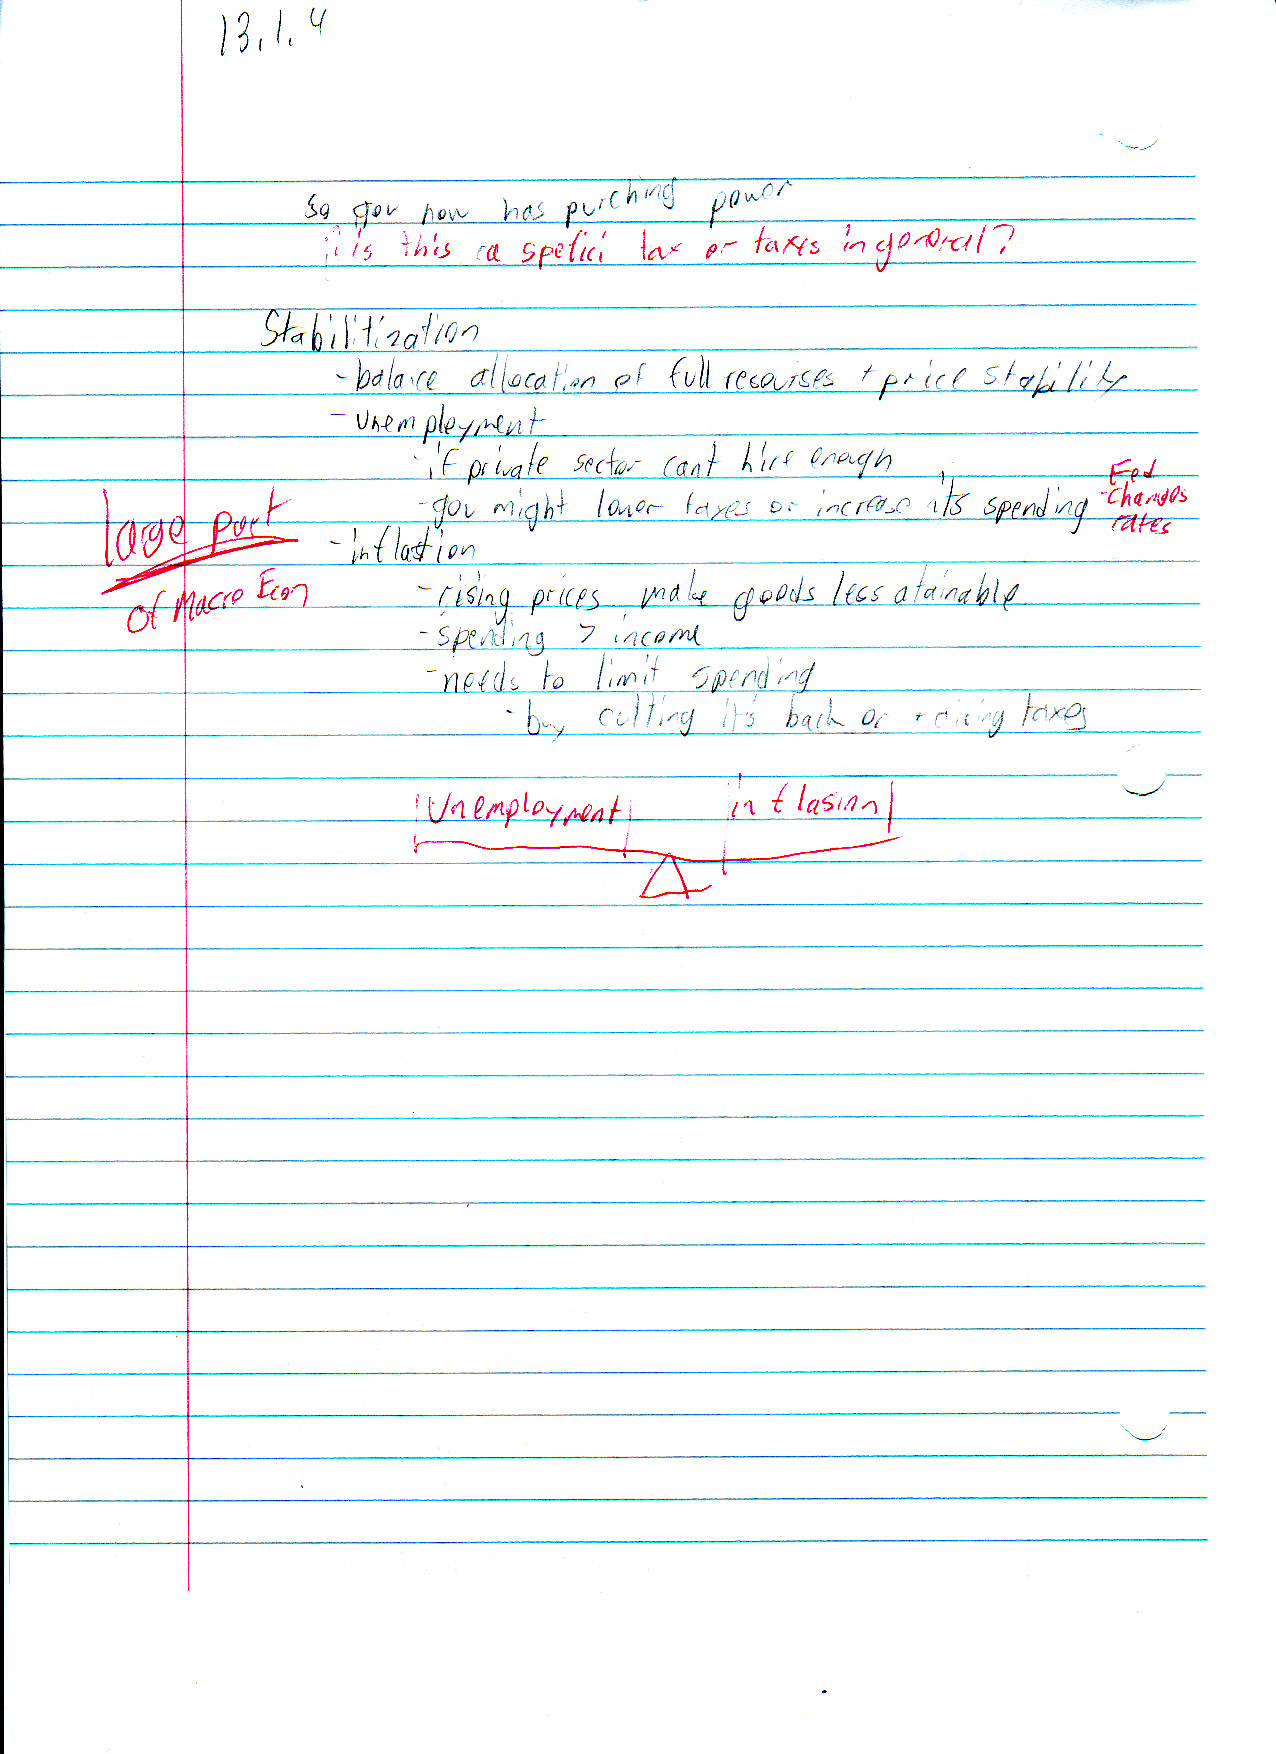 13.1.4
So gov now has purching power
is this a spefici tax or taxes in general?
Stabilitization
- balance allocation of full resourses + price stability
- unemployment
- if private sector cant hire enough
- gov might lower taxes or increase it's spending
Fed
- Changes
rates
large part
of Macro Econ
- inflastion
- rising prices make goods less atainable
- spending > income
- needs to limit spending
- buy cutting it's back or raising taxes
Unemployment inflasion